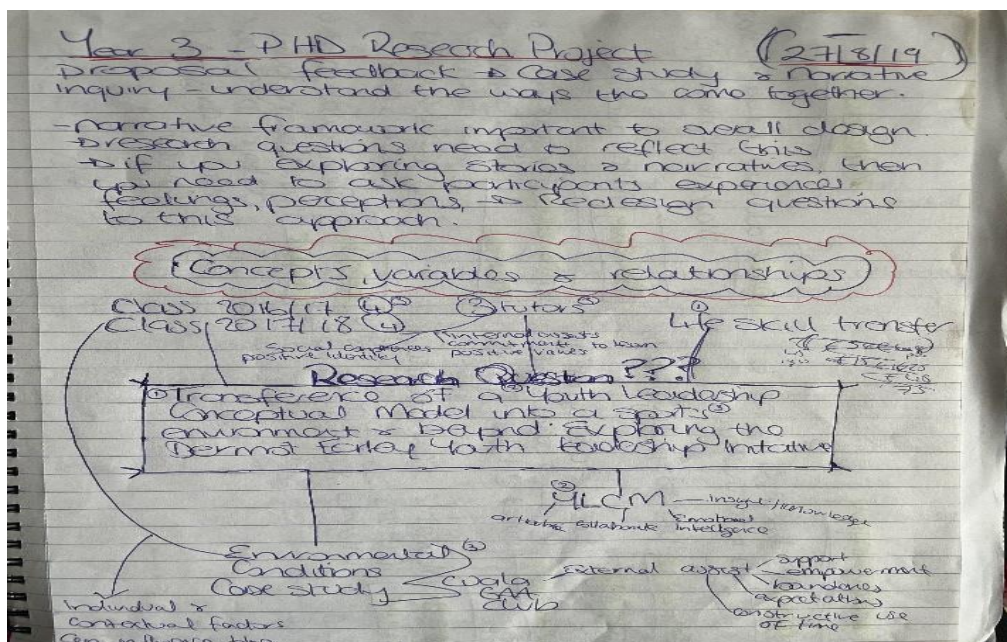 Year 3 - PHD Research Project (27/8/19)
Proposal feedback → Case study & narrative
inquiry - understand the ways the come together.
- narrative framework important to overall design.
→ research questions need to reflect this
→ if you exploring stories & narratives then
you need to ask participants experiences,
feelings, perceptions, → Redesign questions
to this approach.
Concepts, variables & relationships
Class 2016/17 (4)
Class 2017/18 (4)
3 tutors
Life skill transfer
Social competencies
positive identity
internal assets
commitment to learn
positive values
Research Question???
① Transference of a ② Youth Leadership
Conceptual Model into a sports ③
environment & beyond: Exploring the
Dermot Earley Youth Leadership Initiative
② YLCM
insight/knowledge
articulate
collaborate
Emotional
intelligence
Environmental ③
Conditions
Case study
Cuala
GAA
Club
External assist
support
empowerment
boundaries
expectations
constructive use
of time
Individual &
contextual factors
can influence the